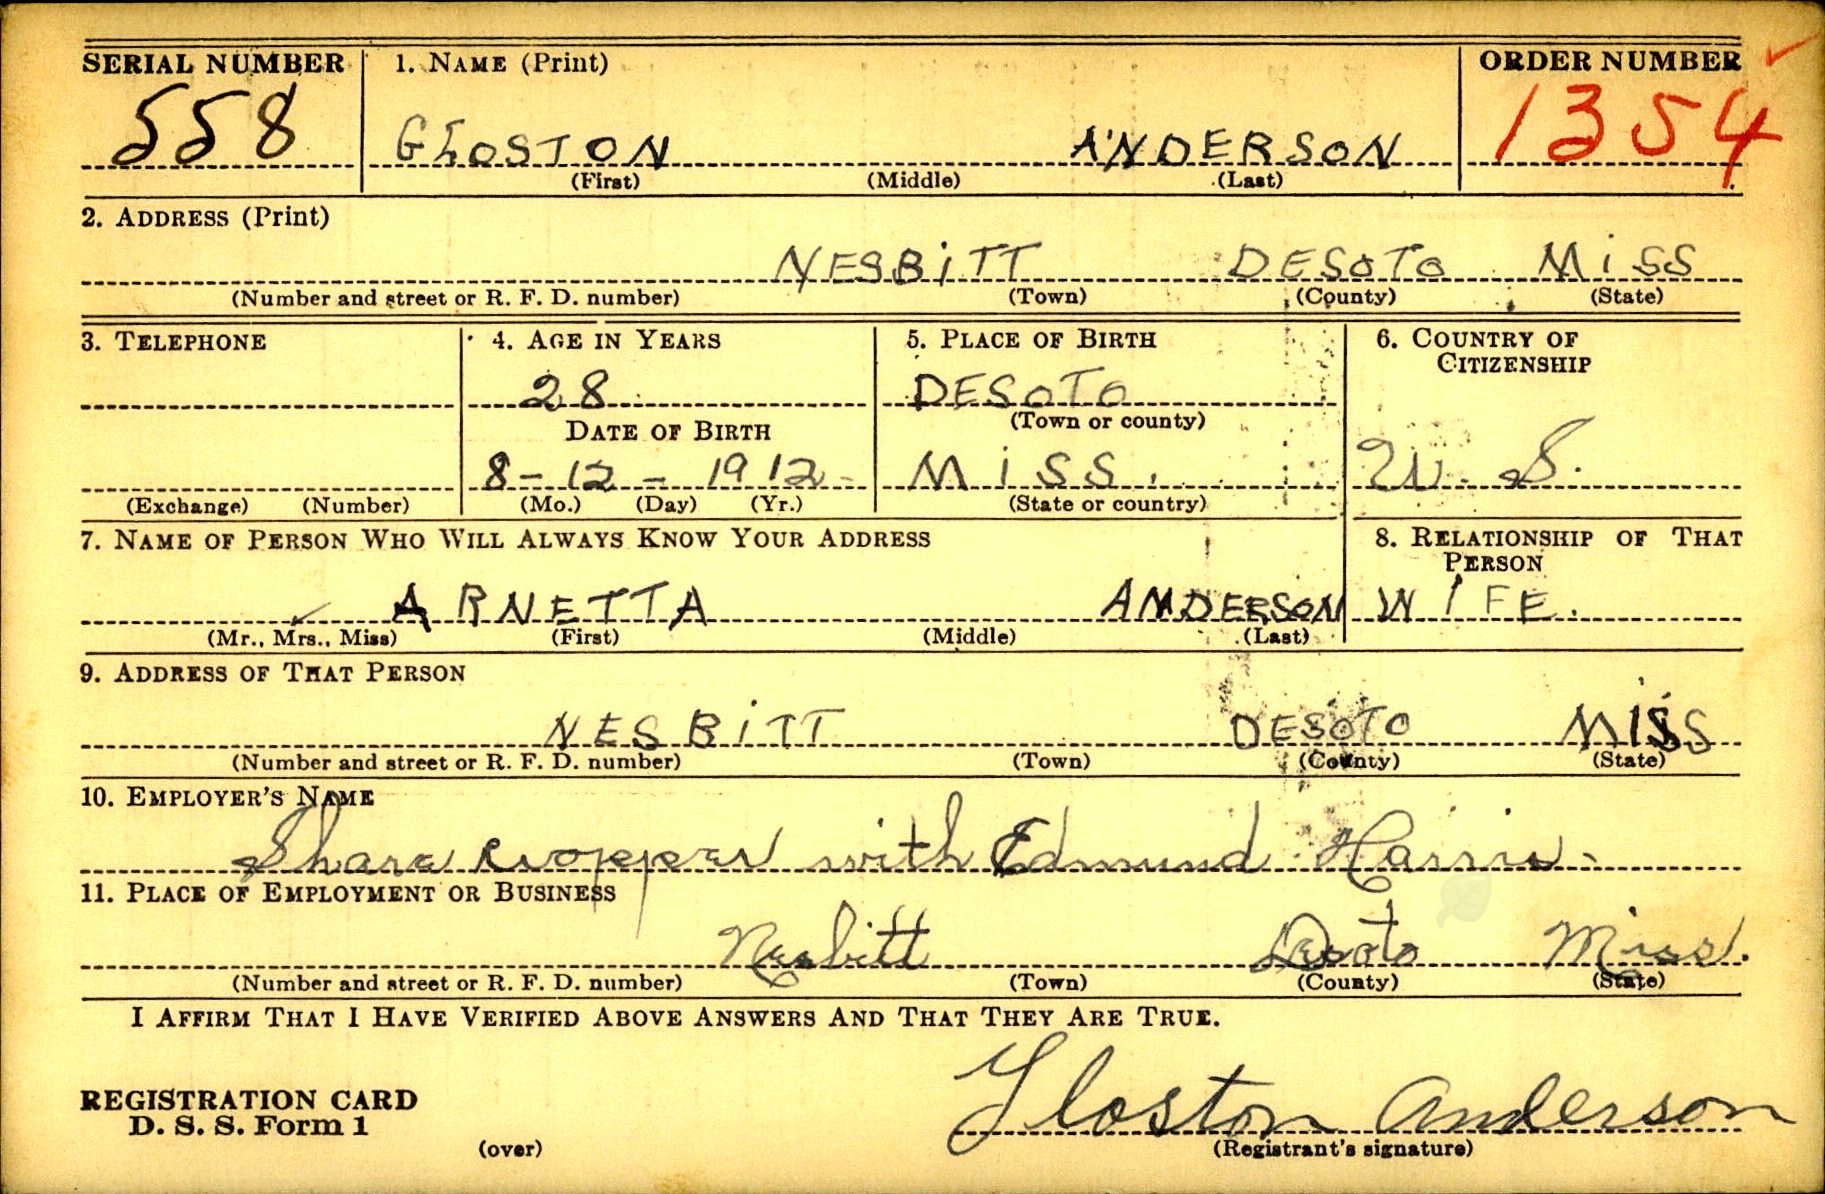 SERIAL NUMBER 1. NAME (Print) ORDER NUMBER
558 GLOSTON ANDERSON 1354
(First) (Middle) (Last)
2. ADDRESS (Print)
NESBITT DESOTO MISS
(Number and street or R. F. D. number) (Town) (County) (State)
3. TELEPHONE 4. AGE IN YEARS 5. PLACE OF BIRTH 6. COUNTRY OF
CITIZENSHIP
28 DESOTO
DATE OF BIRTH (Town or county)
8-12-1912 MISS. U. S.
(Exchange) (Number) (Mo.) (Day) (Yr.) (State or country)
7. NAME OF PERSON WHO WILL ALWAYS KNOW YOUR ADDRESS 8. RELATIONSHIP OF THAT
PERSON
ARNETTA ANDERSON WIFE.
(Mr., Mrs., Miss) (First) (Middle) (Last)
9. ADDRESS OF THAT PERSON
NESBITT DESOTO MISS
(Number and street or R. F. D. number) (Town) (County) (State)
10. EMPLOYER'S NAME
Share cropper with Edmund Harris.
11. PLACE OF EMPLOYMENT OR BUSINESS
Nesbitt Desoto Miss.
(Number and street or R. F. D. number) (Town) (County) (State)
I AFFIRM THAT I HAVE VERIFIED ABOVE ANSWERS AND THAT THEY ARE TRUE.
REGISTRATION CARD
D. S. S. Form 1 Gloston Anderson
(over) (Registrant's signature)